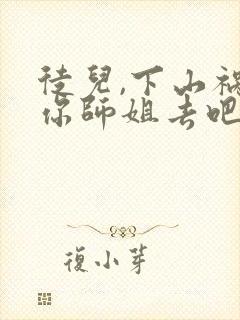 徒兒,下山禍
你師姐去吧
復小芽